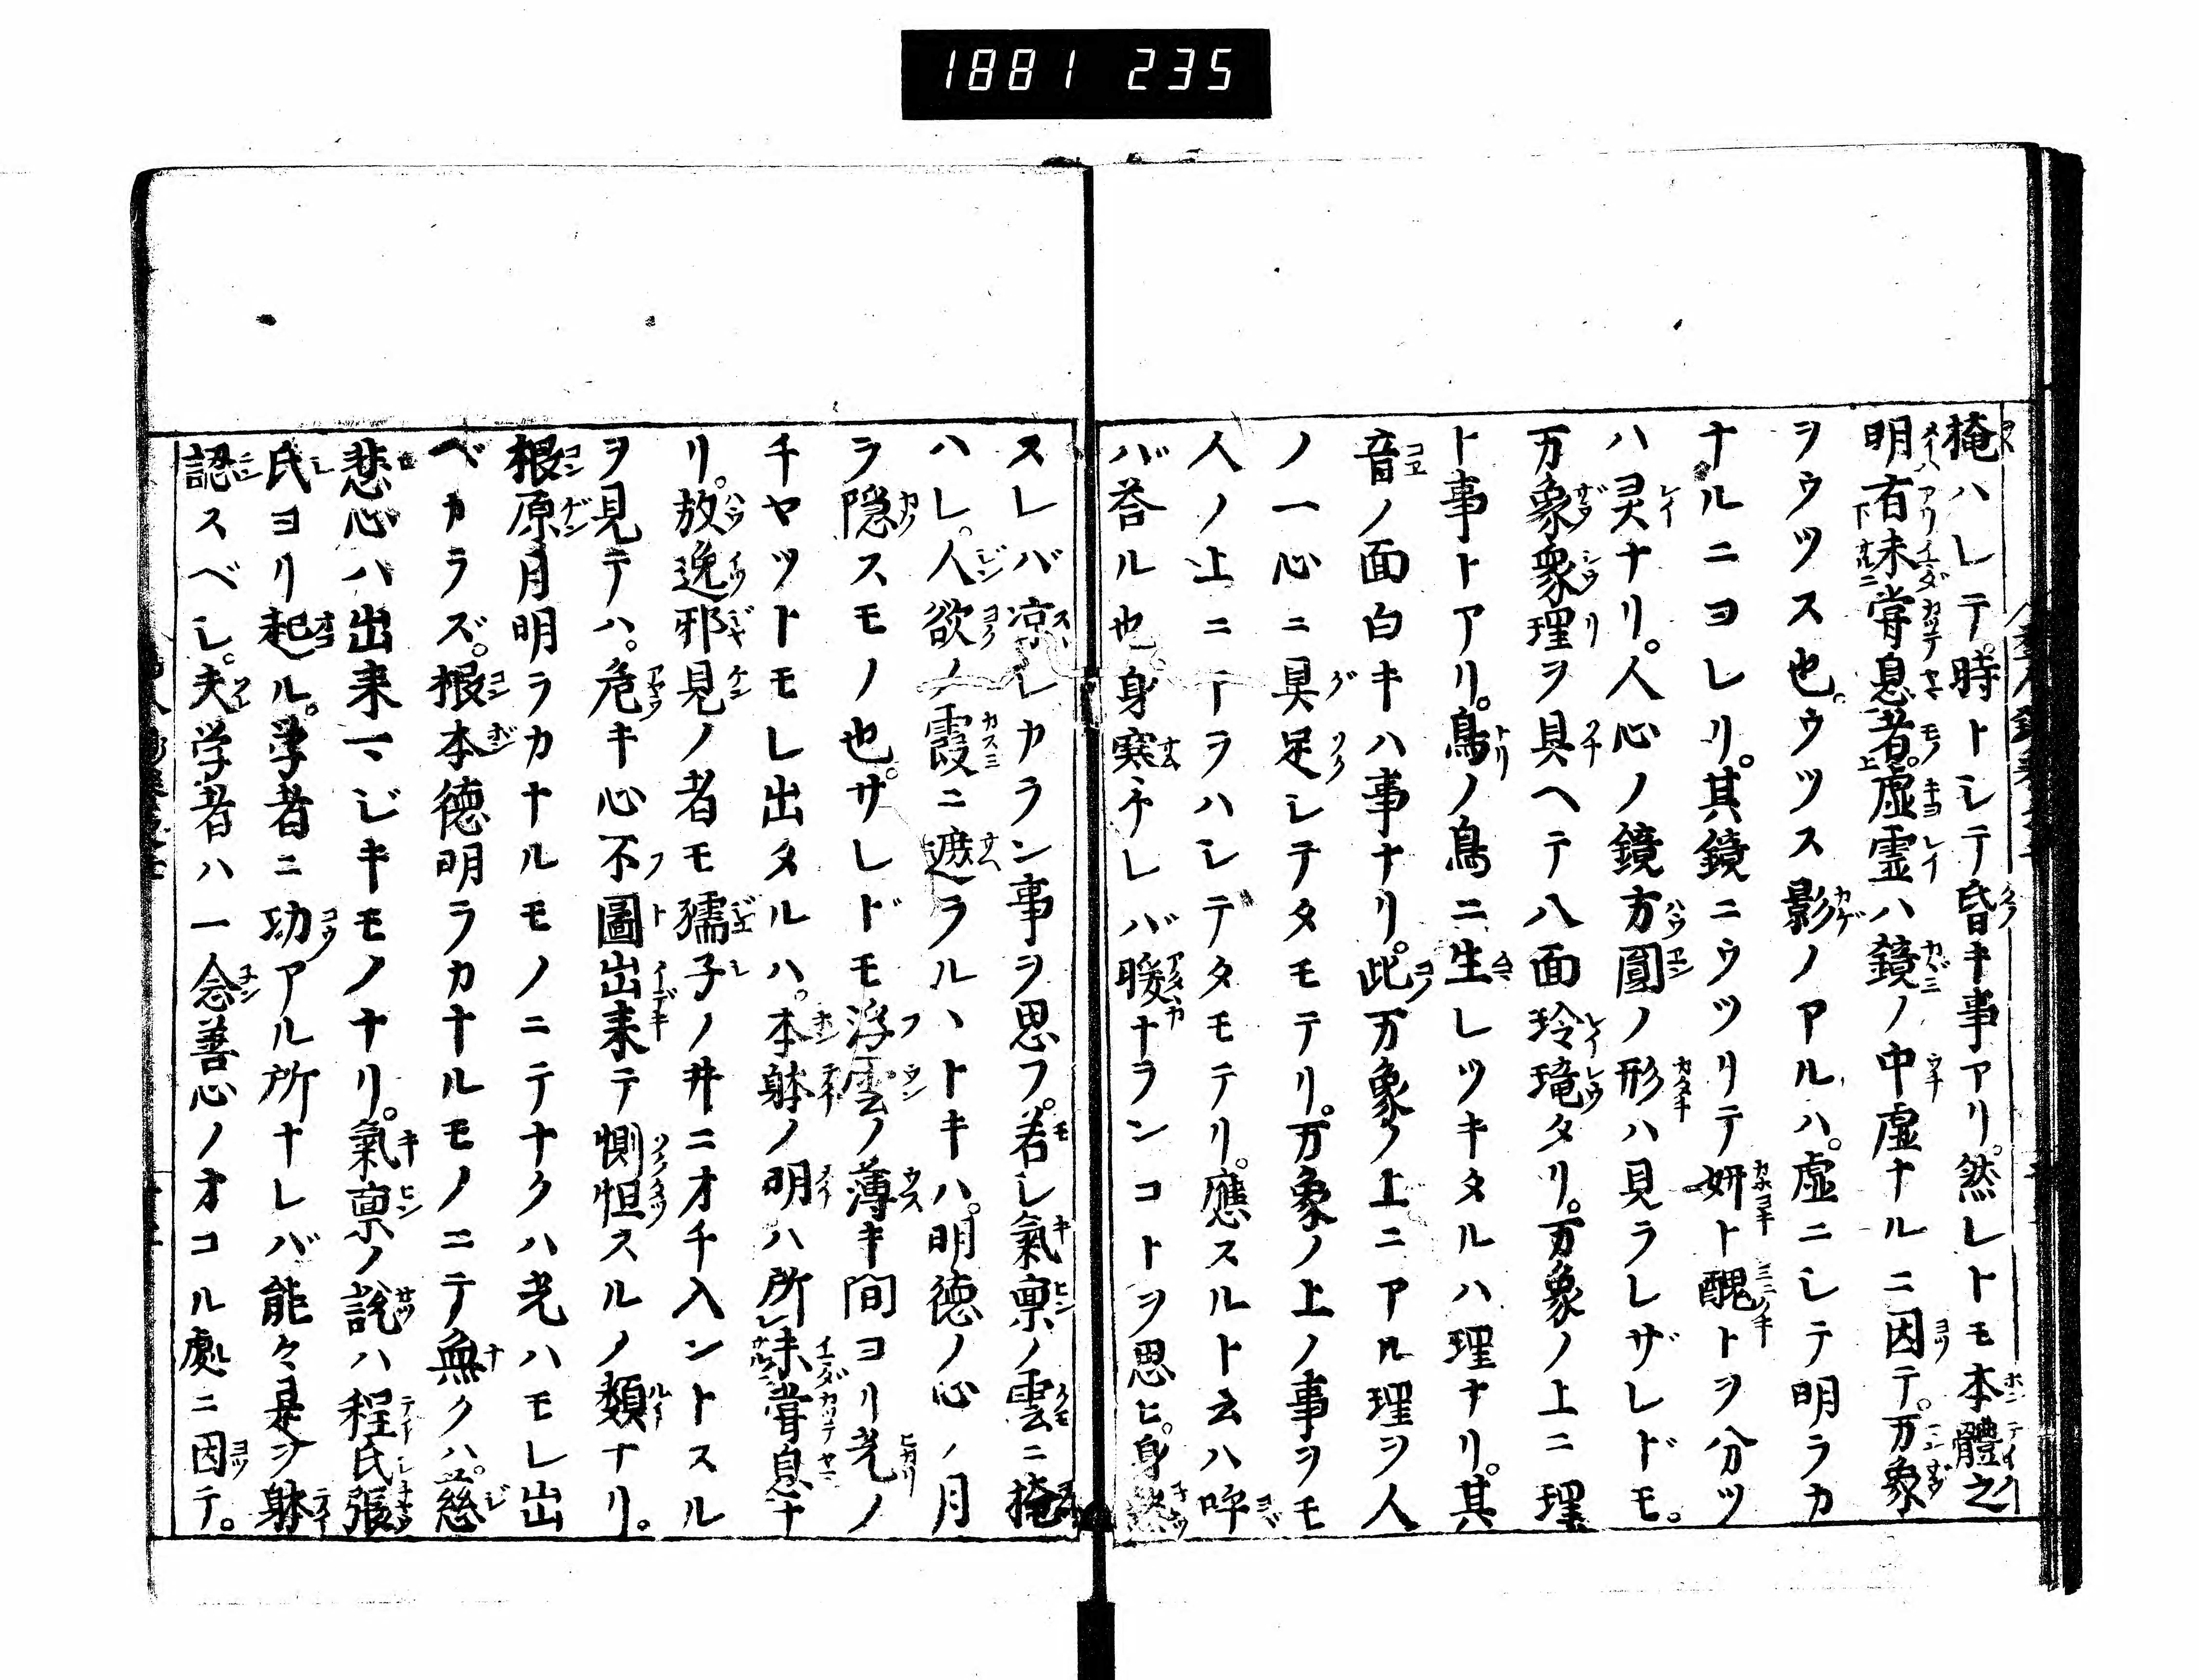 1881 235
掩ハレテ。時トシテ昏キ事アリ。然レトモ本體之
明有未甞息者。虚霊ハ鏡ノ中虚ナルニ因テ。万象
ヲウツス也。ウツス影ノアルハ。虚ニシテ明ラカ
ナルニヨレリ。其鏡ニウツリテ妍ト醜トヲ分ツ
ハ灵ナリ。人心ノ鏡方圓ノ形ハ見ラレザレドモ。
万象衆理ヲ具ヘテ八面玲瓏タリ。万象ノ上ニ理
ト事トアリ。鳥ノ鳥ニ生レツキタルハ理ナリ。其
音ノ面白キハ事ナリ。此万象ノ上ニアル理ヲ人
ノ一心ニ具足シテタモテリ。万象ノ上ノ事ヲモ
人ノ上ニテラハシテタモテリ。應スルト云ハ呼
バ荅ル也。身寒ケレバ暖ナランコトヲ思ヒ。身熱
スレバ凉シカラン事ヲ思フ。若し氣禀ノ雲ニ掩
ハレ。人欲ノ霞ニ遮ラルヽトキハ。明徳ノ心ノ月
ラ隠スモノ也。サレドモ浮雲ノ薄キ間ヨリ光ノ
チヤツトモレ出タルハ。本躰ノ明ハ所未甞息ナ
リ。放逸邪見ノ者モ孺子ノ井ニオチ入ントスル
ヲ見テハ。危キ心不圖出来テ惻怛スルノ類ナリ。
根原月明ラカナルモノニテナクハ光ハモレ出
ベカラズ。根本徳明ラカナルモノニテ無クハ。慈
悲心ハ出来マジキモノナリ。氣禀ノ說ハ程氏張
氏ヨリ起ル。学者ニ功アル所ナレバ能々是ヲ躰
認スベし。夫学者ハ一念善心ノオコル處ニ因テ。